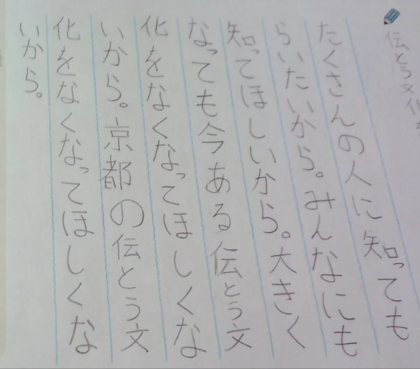 伝とう文化
たくさんの人に知っても
らいたいから。みんなにも
知ってほしいから。大きく
なっても今ある伝とう文
化をなくなってほしくな
いから。京都の伝とう文
化をなくなってほしくな
いから。